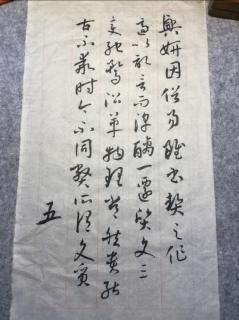 興妍因俗易雖書契之作
適以記言而淳醨一遷質文三
變馳騖沿革物理常然貴能
古不乖時今不同弊所謂文質
五